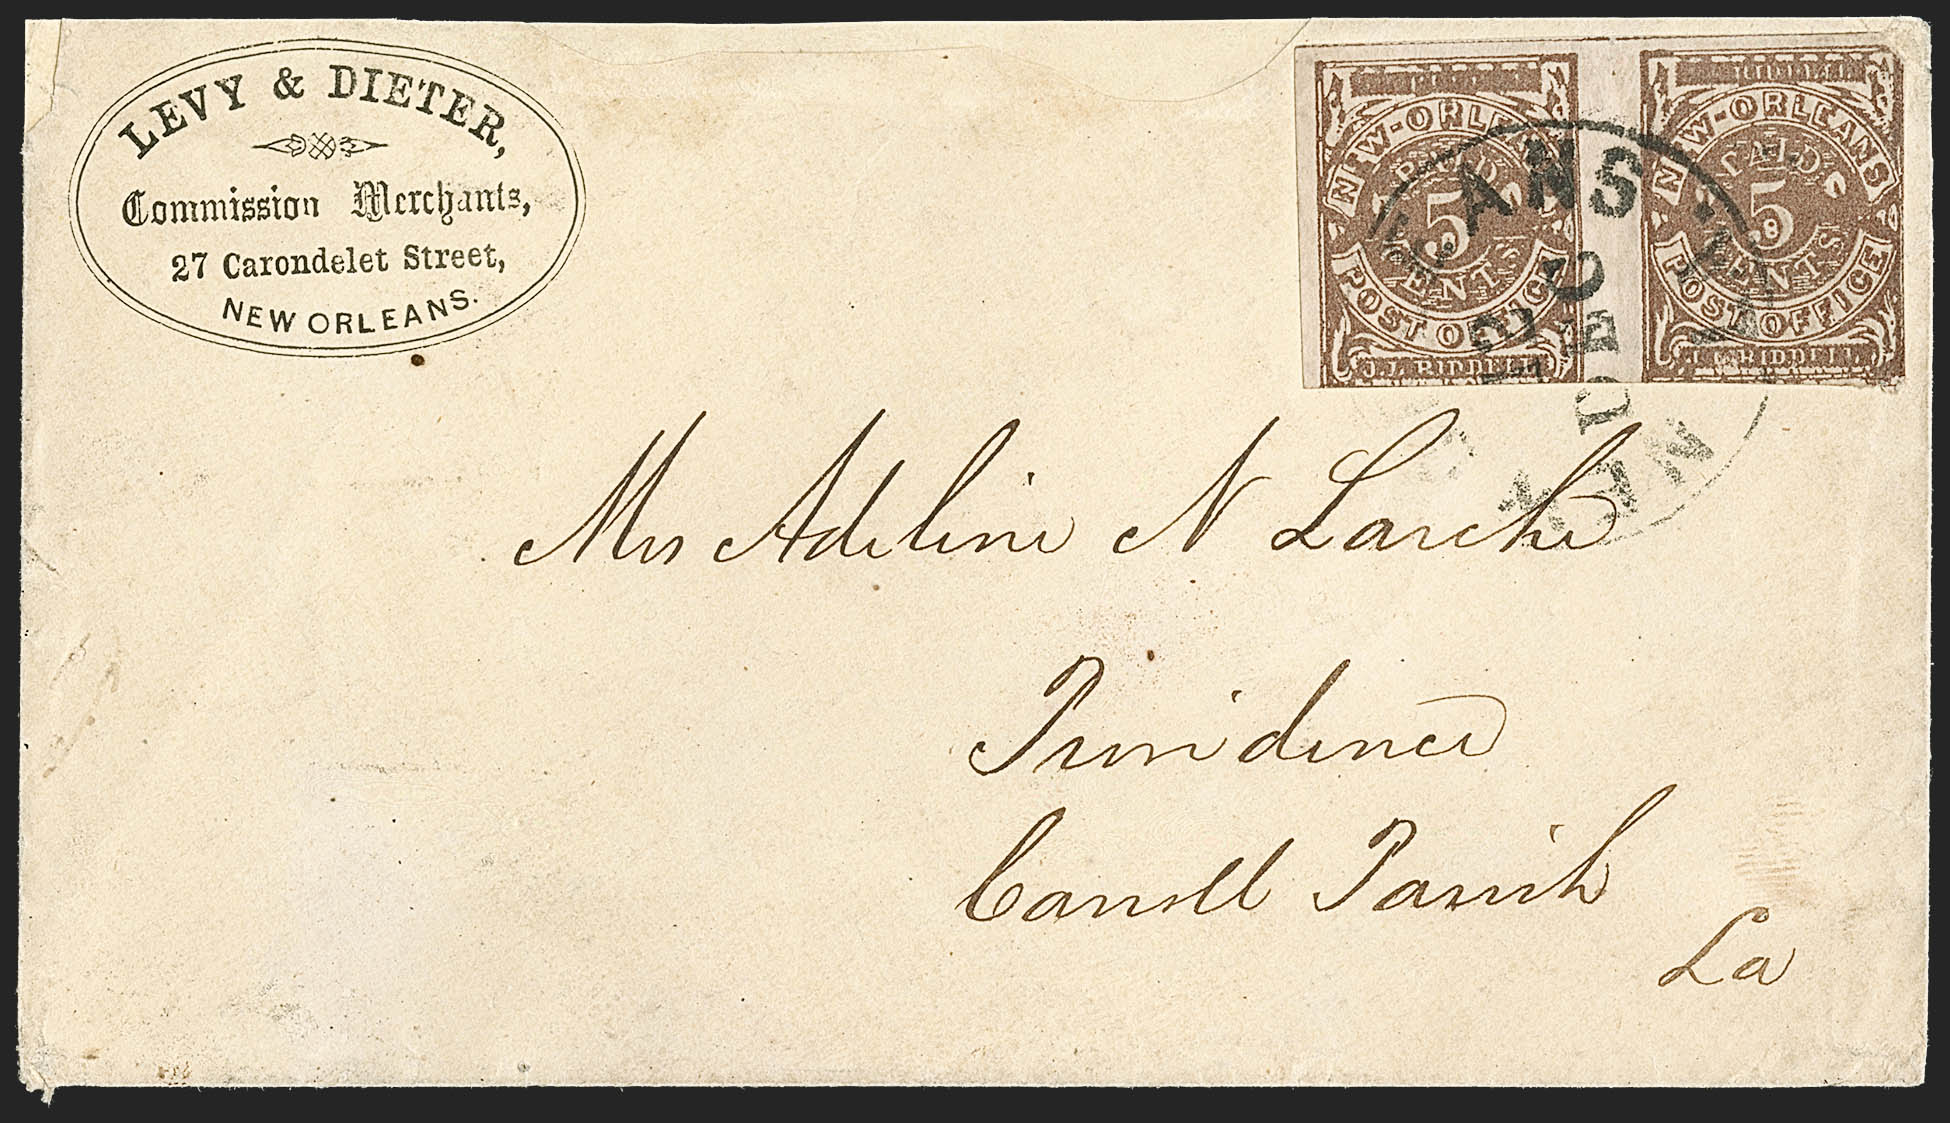 LEVY & DIETER,
Commission Merchants,
27 Carondelet Street,
NEW ORLEANS.
NEW-ORLEANS
PAID
5
CENTS
POST OFFICE
J.L. RIDDELL
RIDDELL
NEW-ORLEANS
PAID
5
CENTS
POST OFFICE
J.L. RIDDELL
NEW
LEANS
Mrs Adeline N Larche
Providence
Carroll Parish
La